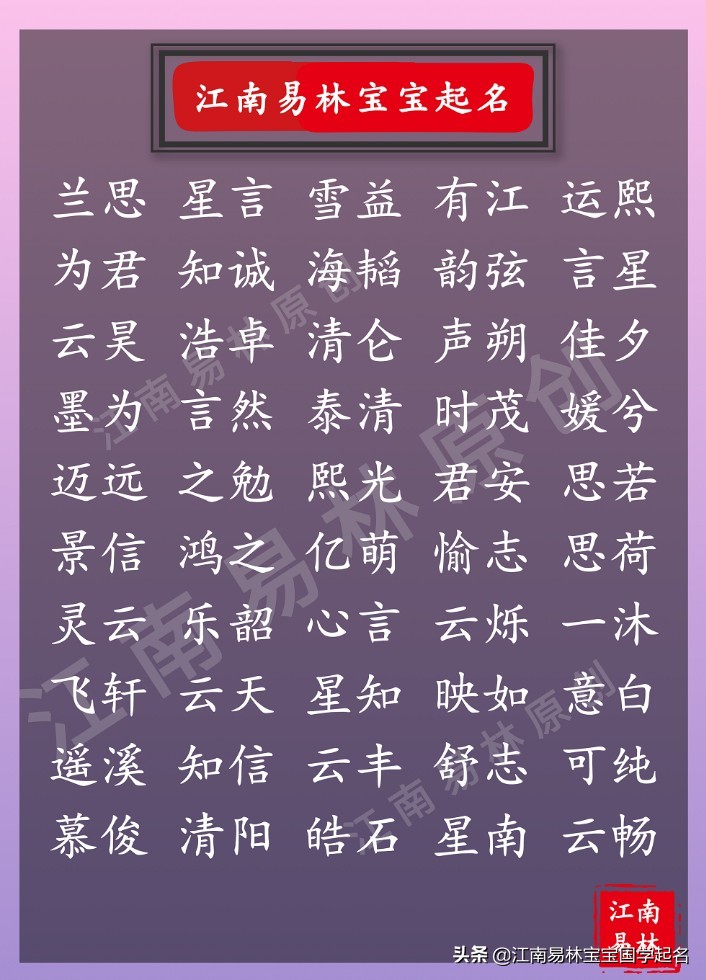 江南易林宝宝起名
兰思 星言 雪益 有江 运熙
为君 知诚 海韬 韵弦 言星
云昊 浩卓 清仑 声朔 佳夕
墨为 言然 泰清 时茂 媛兮
迈远 之勉 熙光 君安 思若
景信 鸿之 亿萌 愉志 思荷
灵云 乐韶 心言 云烁 一沐
飞轩 云天 星知 映如 意白
遥溪 知信 云丰 舒志 可纯
慕俊 清阳 皓石 星南 云畅
江南易林原创
江南易林原创
江南易林原创
江南
易林
头条 @江南易林宝宝国学起名